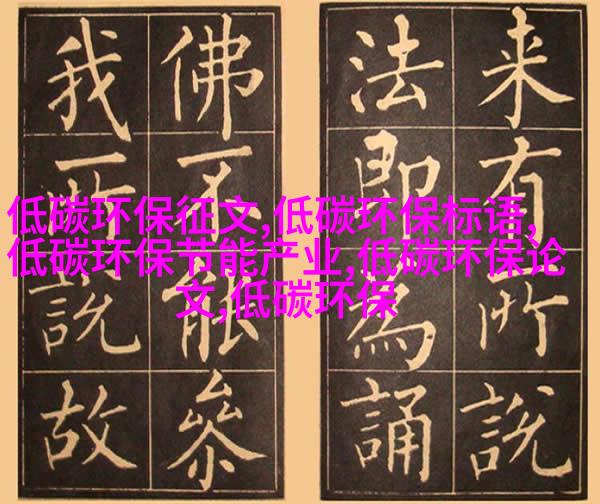 来有所説
法即為誦
佛不能叅
我所説故
低碳环保征文,低碳环保标语,
低碳环保节能产业,低碳环保论
文,低碳环保